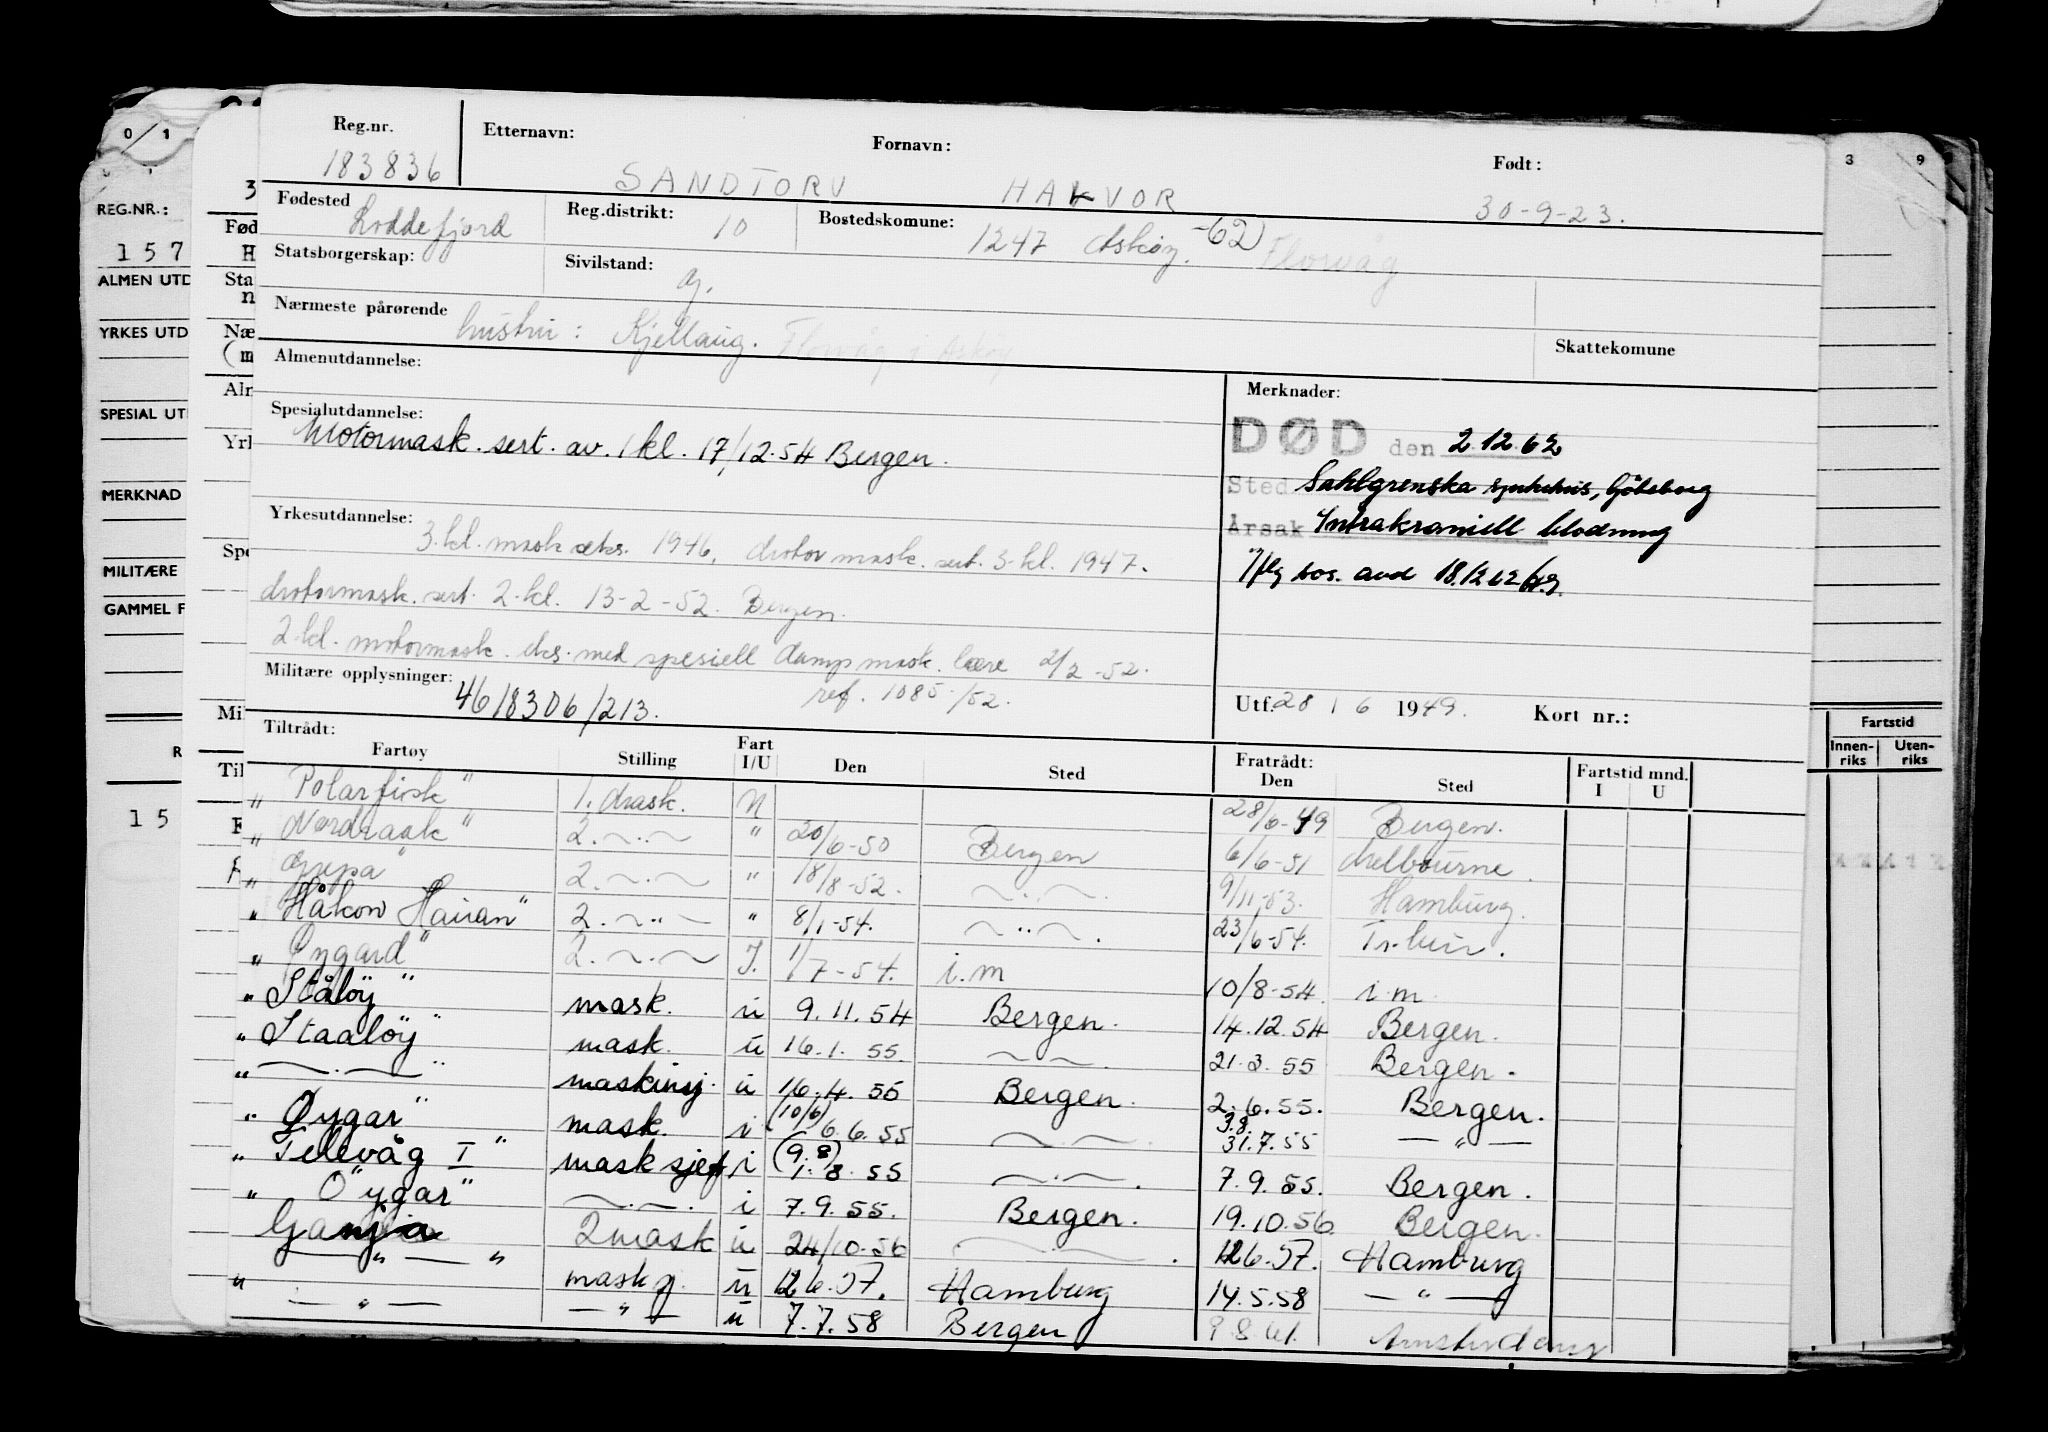 0/1
3 9
REG.NR.:
157
ALMEN UTD
YRKES UTD
SPESIAL UT
MERKNAD
MILITÆRE
GAMMEL F
15
Reg.nr. Etternavn: Fornavn: Født:
183836 SANDTORV HAKVOR 30-9-23.
Fødested Loddefjord Reg.distrikt: 10 Bostedskomune: 1247 Askøy. -62) Florvåg
Statsborgerskap: Sivilstand: g.
Nærmeste pårørende hustru: Kjellaug. Florvåg, Askøy
Skattekomune
Almenutdannelse:
Merknader:
Spesialutdannelse:
Motormask. sert. av. 1 kl. 17/12.54 Bergen.
DØD den 2.12.62
Sted Sahlgrenska sykehus, Göteborg
Årsak Intrakraniell blodning
Yrkesutdannelse:
3.kl. mask eks. 1946, motormask. sert. 3.kl. 1947.
motormask. sert. 2.kl. 13-2-52. Bergen.
2.kl. motormask. eks. med spesiell dampmask. lære 2/2-52.
ref. 1085/52.
Militære opplysninger: 46/8306/213.
Utf. 28/6 1949. Kort nr.:
Tiltrådt: Fratrådt: Fartstid mnd.
Fartøy Stilling Fart I/U Den Sted Den Sted I U
Fartstid
Innen-riks Uten-riks
"Polarfisk" 1. mask. U 28/6-49 Bergen.
"Nordraak" 2. ~.~ " 20/6-50 Bergen 6/6-51 Melbourne.
"Gripa" 2. ~.~ " 18/8-52. ~.~. 9/11-53. Hamburg.
"Håkon Hauan" 2. ~"~ " 8/1-54. ~"~. 23/6-54.
"Øygard" 2. ~.~ I. 1/7-54. i.m 10/8-54. i.m
"Ståløy" mask. u 9.11.54 Bergen. 14.12.54 Bergen.
"Staaløy" mask. u 16.1.55. ~ ~. 21.3.55 Bergen.
"~.~" maskinsj. u 16.4.55 Bergen. 2.6.55. Bergen.
"Øygar" mask. i (10/6) 6.6.55 ~.~. 3.8. 31.7.55 — " —
"Telavåg I" masksjef i (9.8) 1.8.55 ~.~. 7.9.55. Bergen.
"Öygar" ~.~. i 7.9.55. Bergen. 19.10.56 Bergen.
Ganja 2 mask u 24/10.56 ~.~. 12.6.57. Hamburg
" — " — " mask u 12.6.57. Hamburg 14.5.58 — " —
— " — — " — u 7.7.58 Bergen 9.8.61. Amsterdam